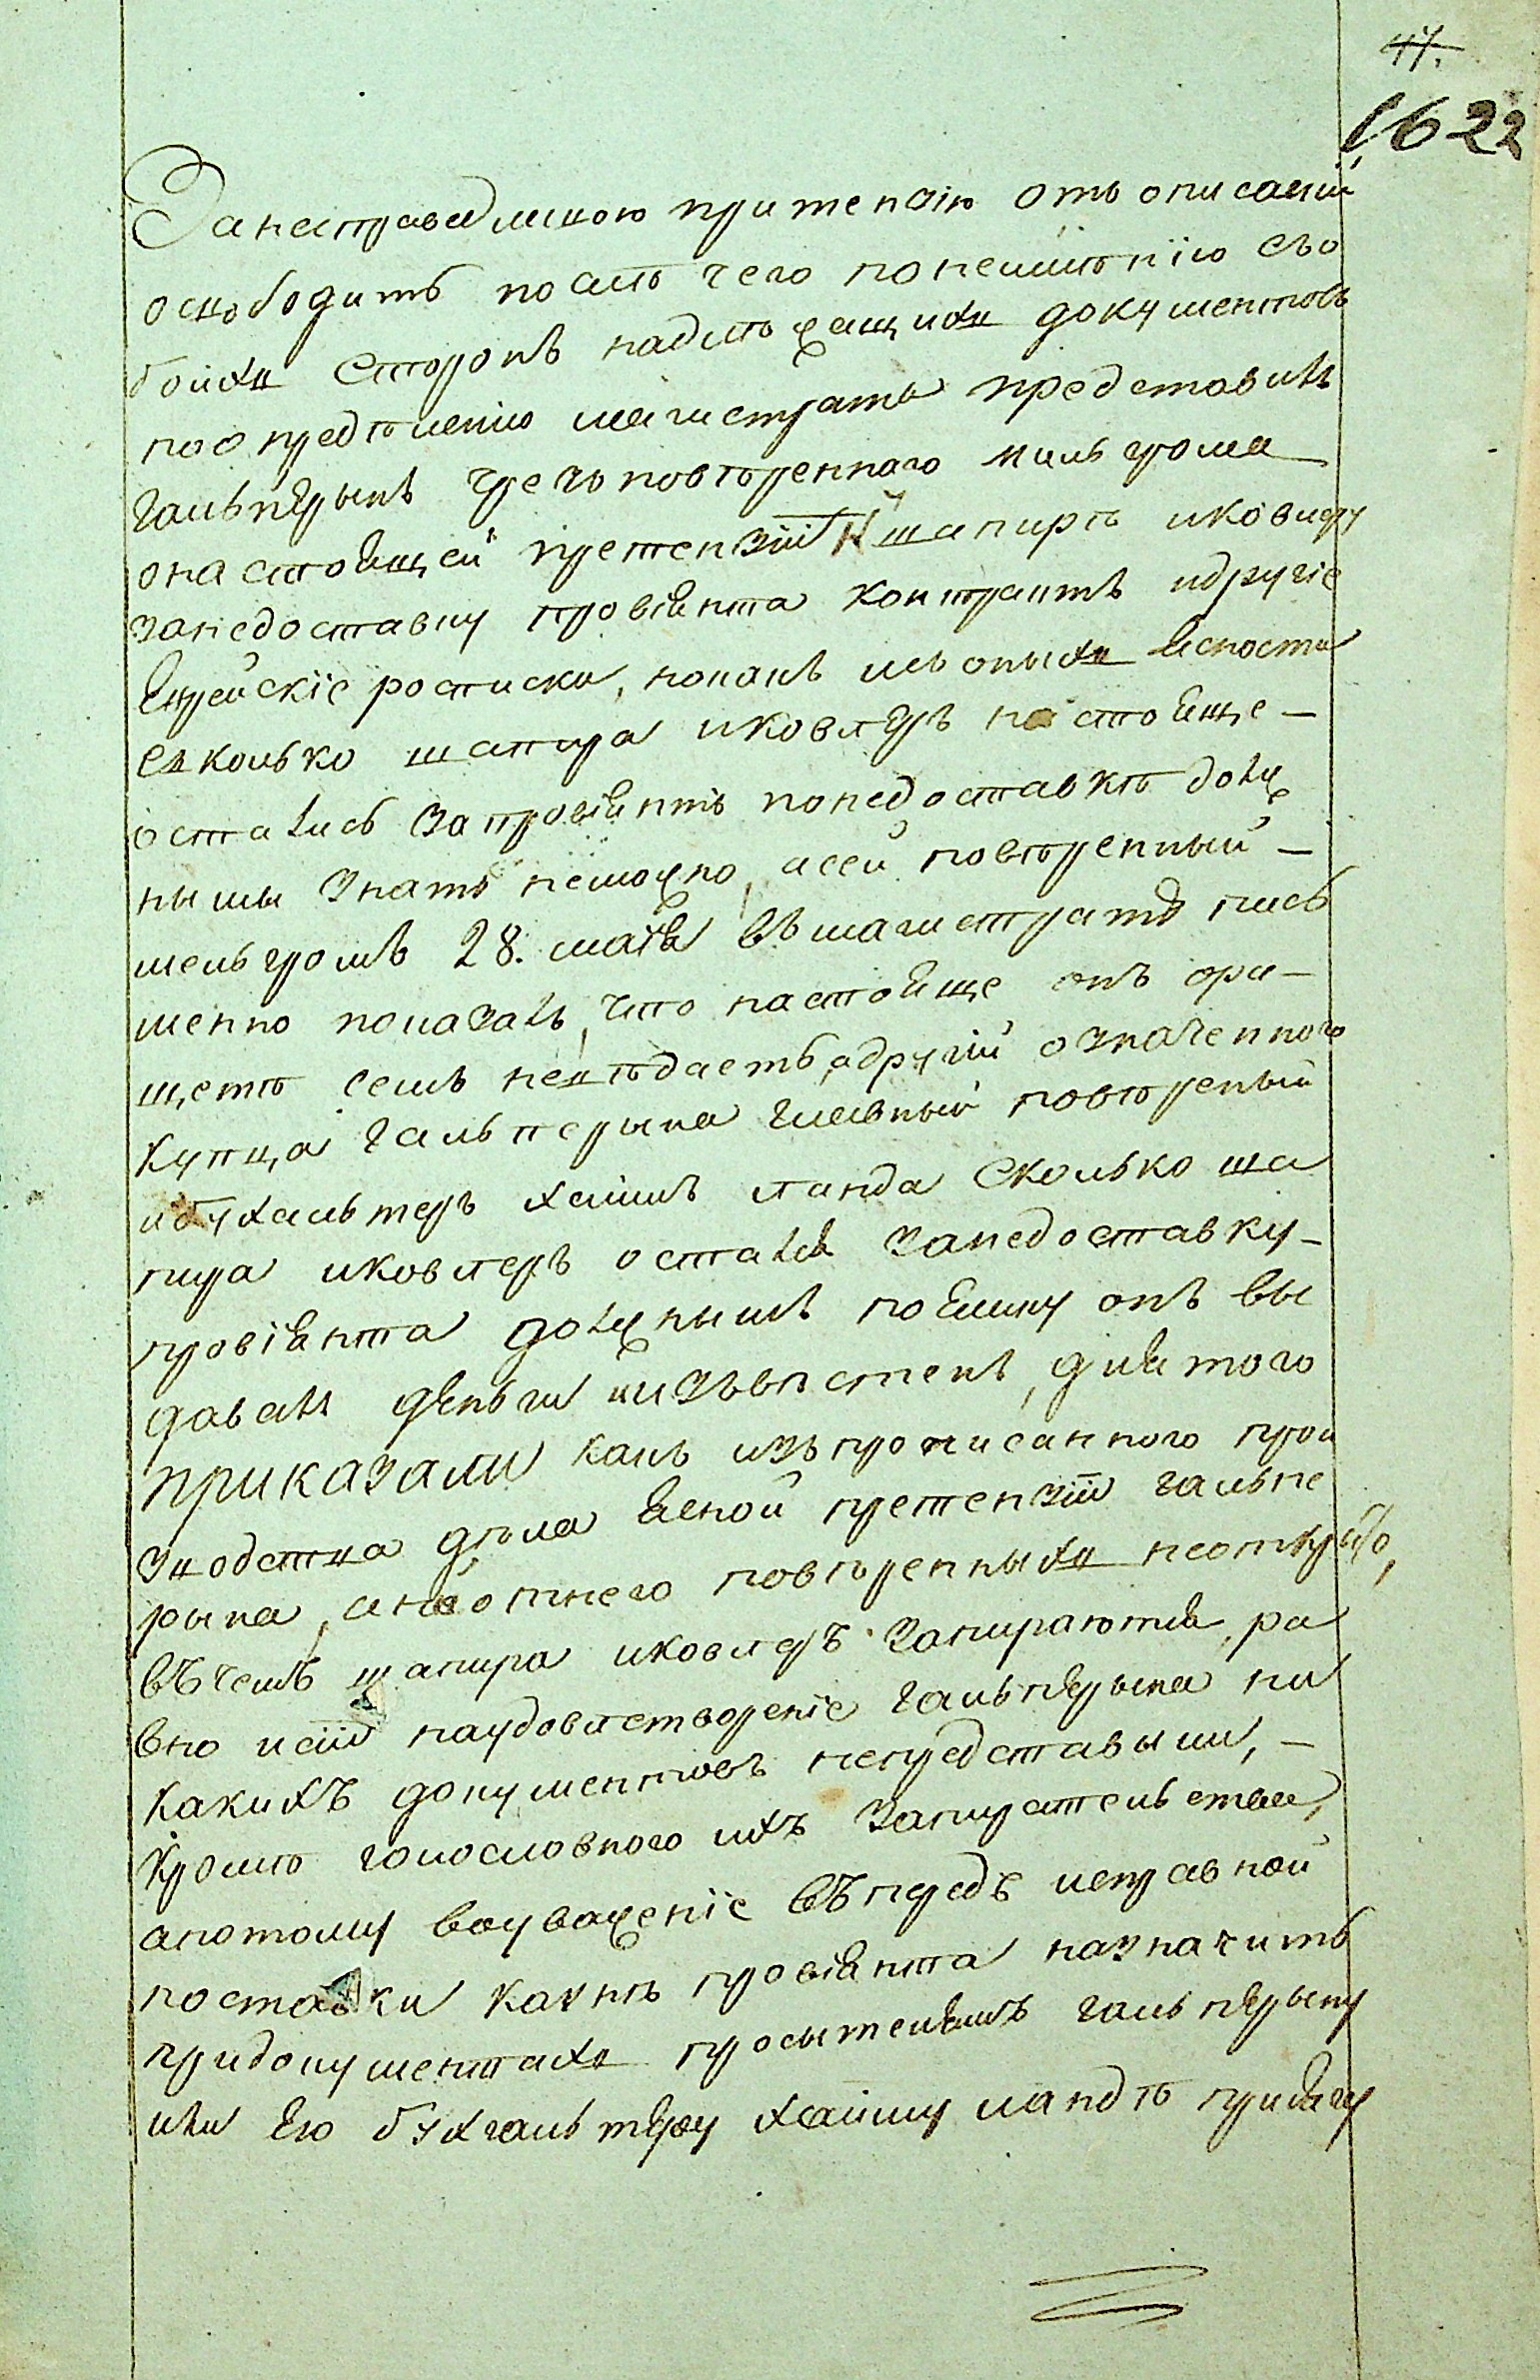 47.
1622
За несправедливою притензiю отъ описанiи
освободить послѣ чего понеимѣнiю съо
боихъ Сторонъ надлѣжащихъ документовъ
поопредѣленiю магистрата представилъ
гальперынъ чрезъ повѣреннаго мильгрома
онастоящей претензiи К шапирѣ иковлеру
занедоставку провiянта контрактъ идругiе
Еврейскiе росписки, покакъ изъ оныхъ ясности
Сколько шапира иковлеръ настояще —
осталисъ запровiянтъ понедоставкѣ долж
ными знать неможно, асей повѣренный —
мельгромъ 28. маiя въ магистратѣ пись
менно показалъ, что настояще онъ ора —
щетѣ семъ невѣдаетъ, адругiй означенного
купца гальперына главный повѣреный
ибухальтеръ хаимъ ланда Сколько ша
пира иковлеръ осталя занедоставку —
провiянта должнымъ поЕлику онъ вы
давалъ деньги иизъвѣстенъ, для того
приказали какъ изъ прописанного прои
зводства дѣла ясной претензiи гальпе
рына, аниотнего повѣренныхъ неоткрыто,
въ чемъ шапира иковлеръ запираются, ра
вно исiи наудовлетворенiе гальперына ни
какихъ документовъ непредставыли, —
Кромѣ голословного ихъ запирательства,
апотому воуваженiе въпредъ исправной
поставки вказнѣ провiянта назначить
придокументахъ просытелямъ гальперыну
или Его бухгальтеру хаиму ландѣ присягу